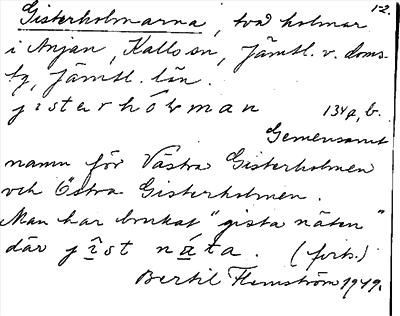 12.
Gisterholmarna, två holmar
i Anjan, Kallssn, Jämtl. v. doms-
fg, Jämtl. län.
jisterhólman 134 a, b.
Gemensamt
namn för Västra Gisterholmen
och Östra Gisterholmen.
Man har brukat "gista näten"
där jîst nä́ta. (forts.)
Bertil Flemström 1949.